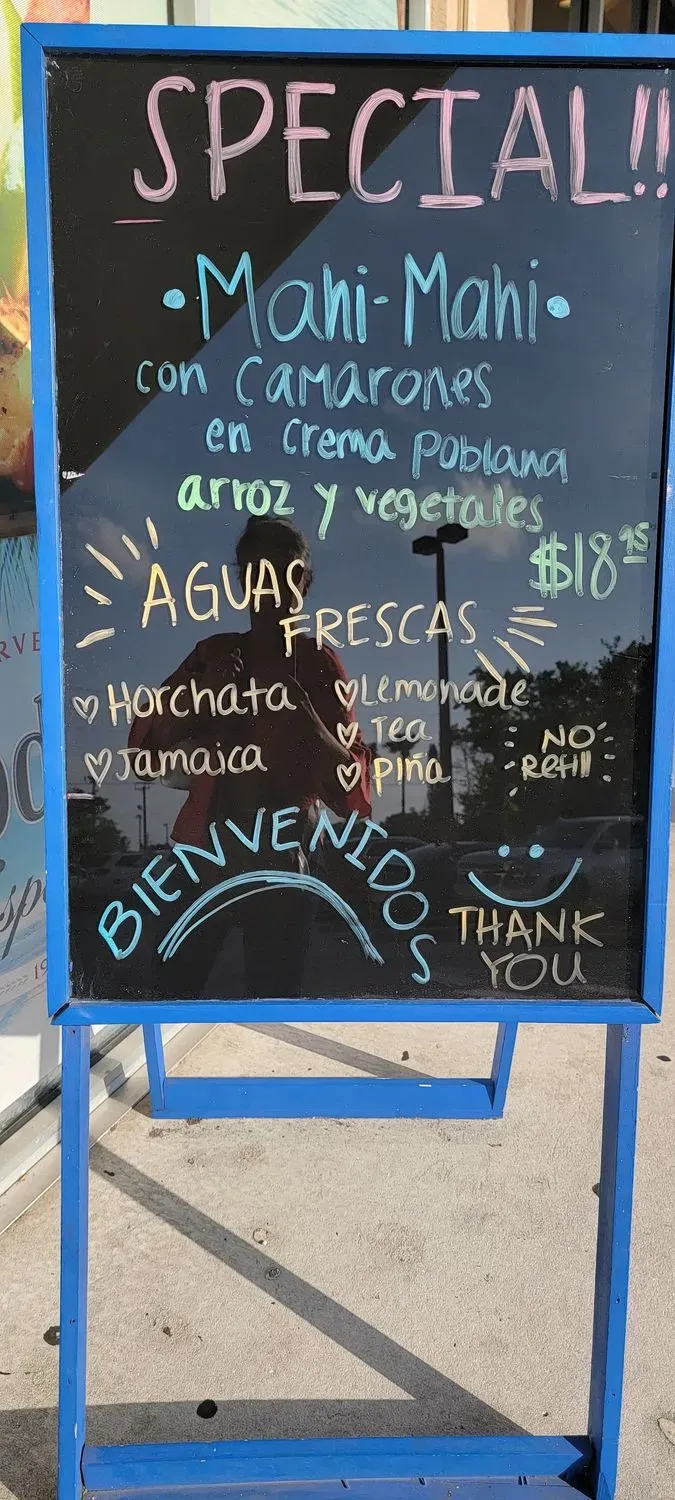 SPECIAL!!
•Mahi-Mahi•
con camarones
en crema poblana
arroz y vegetales
$18.95
AGUAS
FRESCAS
♡Horchata
♡Jamaica
♡Lemonade
♡Tea
♡Piña
NO
Refill
BIENVENIDOS
THANK
YOU